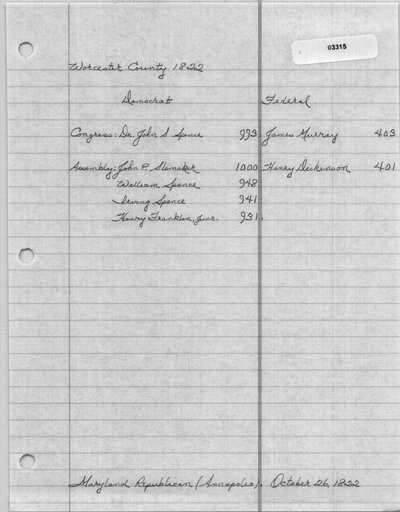 03315
Worcester County 1822
Democrat Federal
Congress: Dr. John S Spence 993 James Murray 403
Assembly: John P. Slemaker 1000 Henry Dickenson 401
William Spence 948
Irving Spence 941
Henry Franklin, Junr. 931
Maryland Republican (Annapolis). October 26, 1822